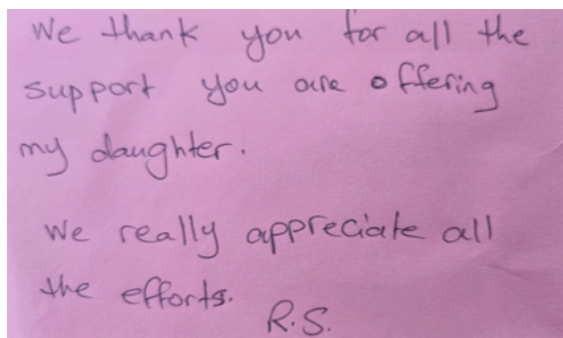 We thank you for all the
support you are offering
my daughter.
We really appreciate all
the efforts.
R.S.